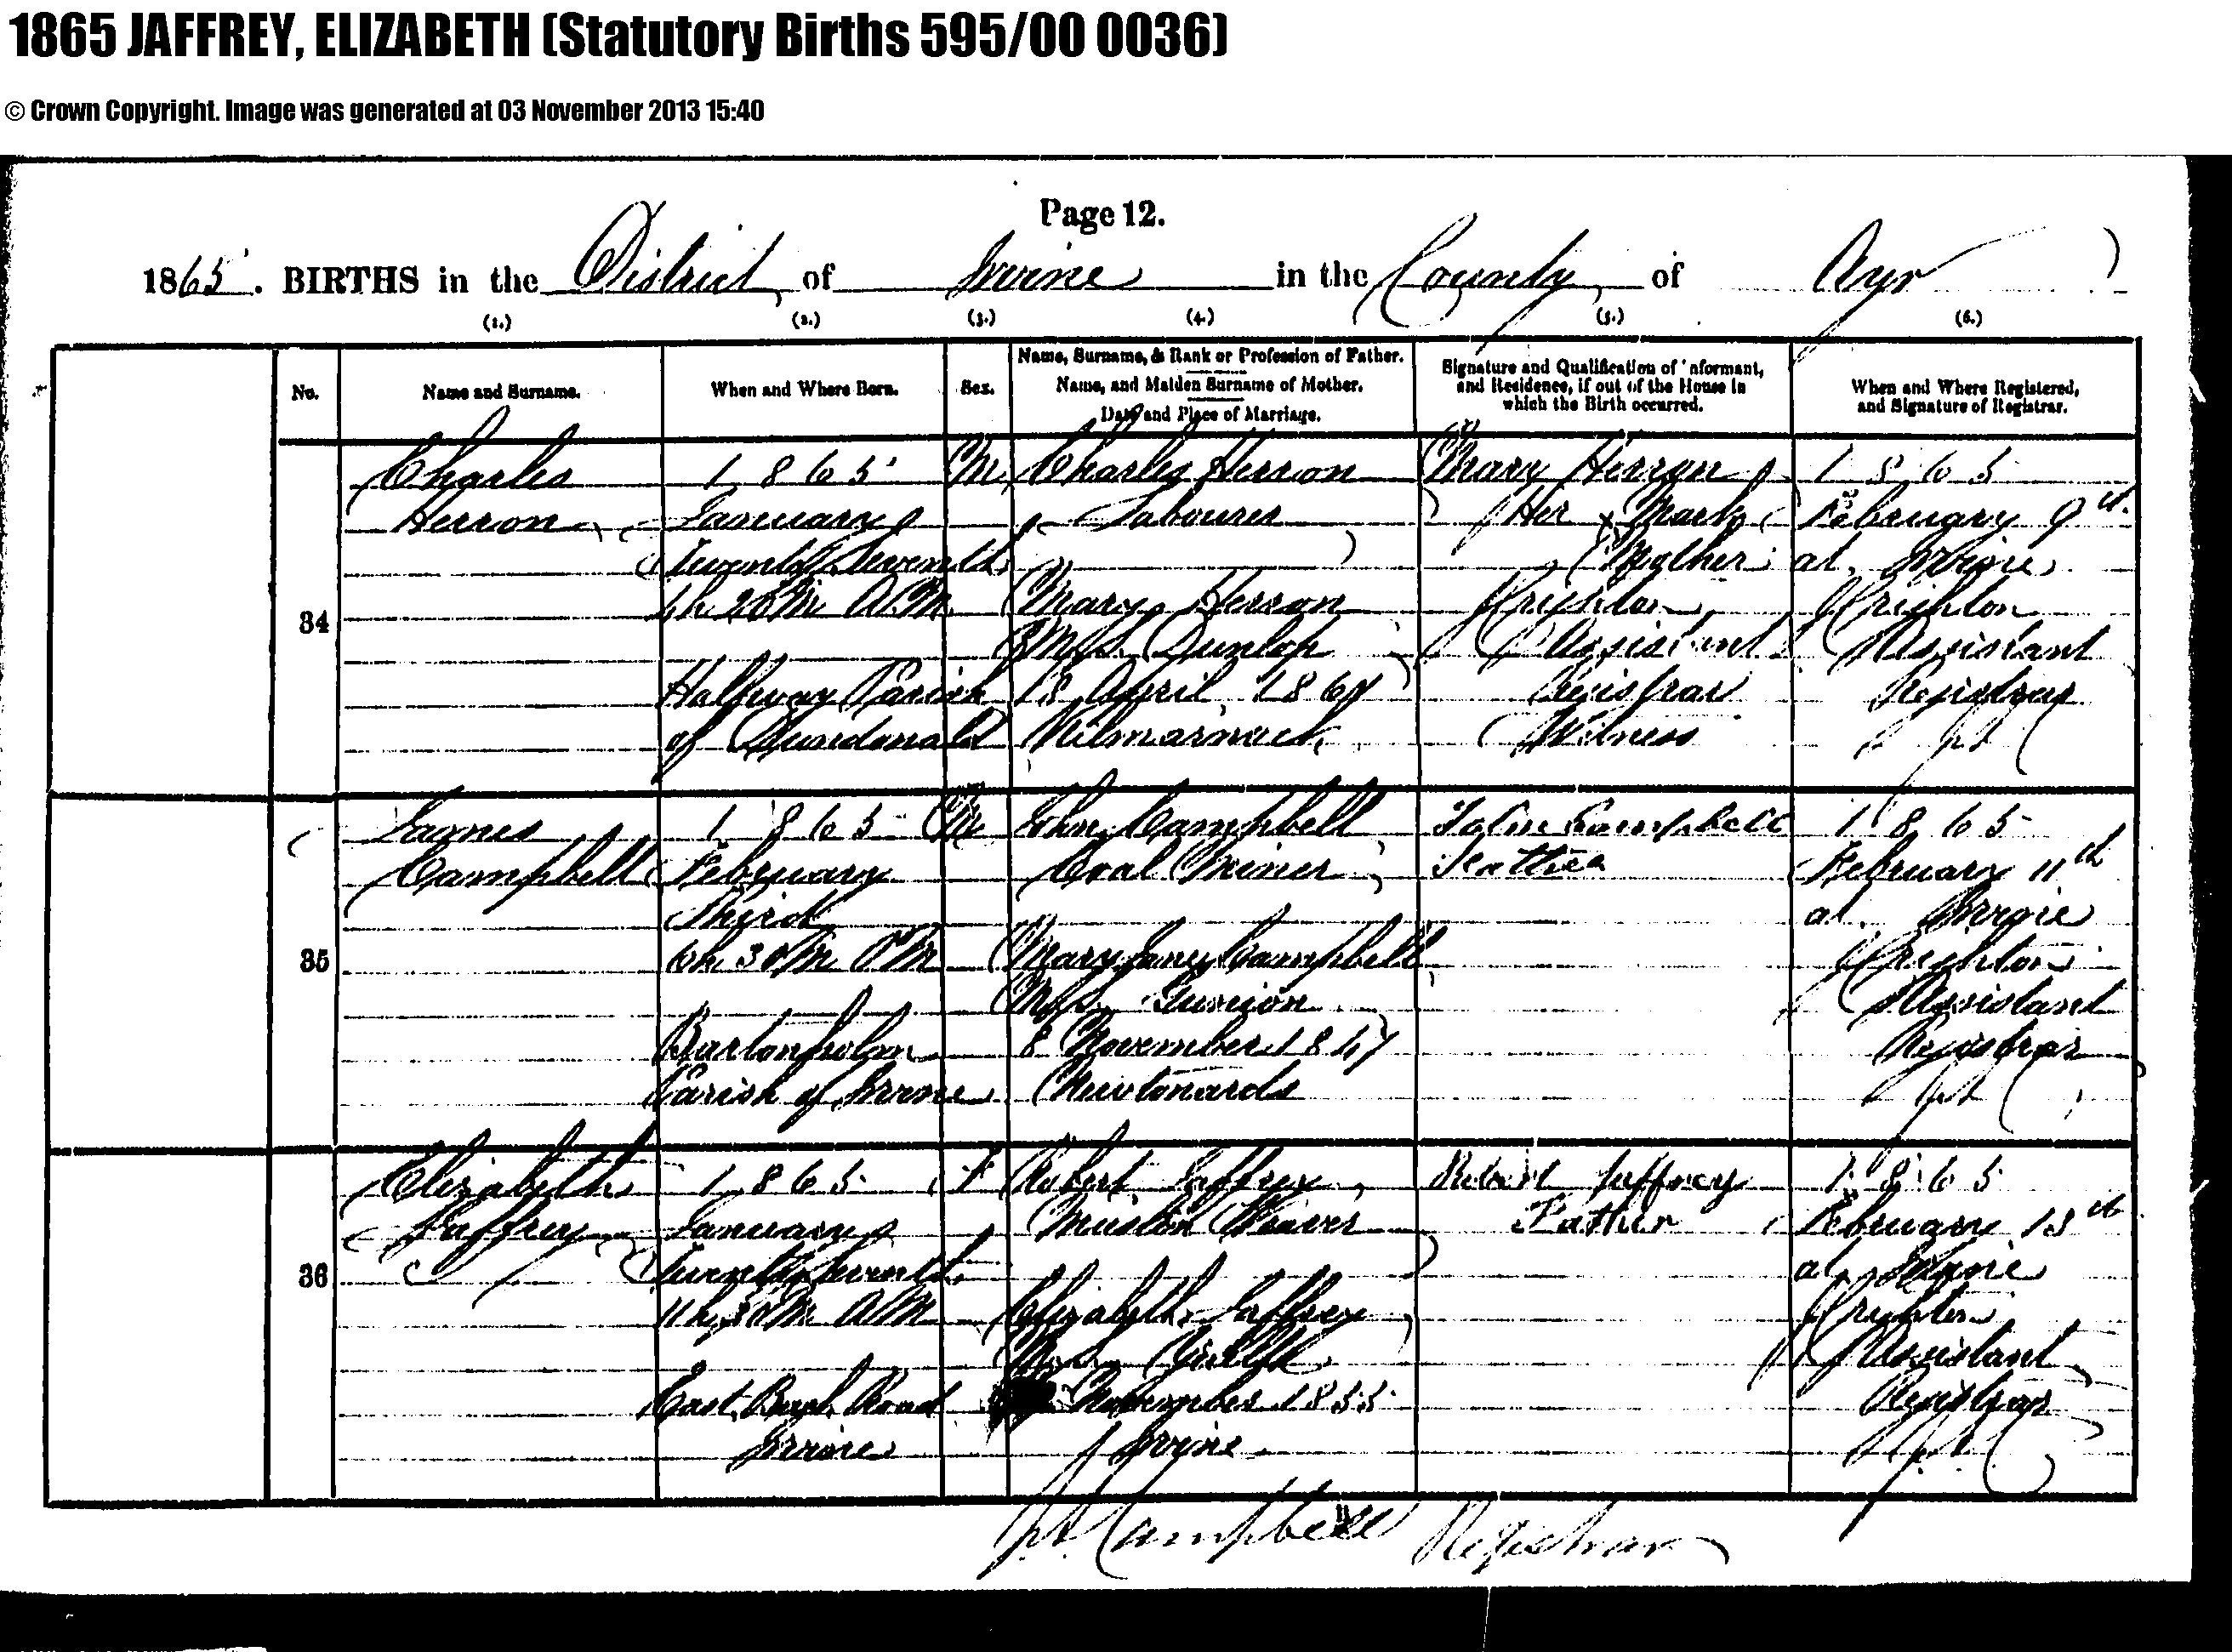 1865 JAFFREY, ELIZABETH (Statutory Births 595/00 0036)
© Crown Copyright. Image was generated at 03 November 2013 15:40
Page 12.
1865. BIRTHS in the District of Irvine in the County of Ayr
(1.) (2.) (3.) (4.) (5.) (6.)
No.
Name and Surname.
When and Where Born.
Sex.
Name, Surname, & Rank or Profession of Father.
Name, and Maiden Surname of Mother.
Date and Place of Marriage.
Signature and Qualification of Informant,
and Residence, if out of the House in
which the Birth occurred.
When and Where Registered,
and Signature of Registrar.
34
Charles
Herron
1865
January
Twenty Seventh
4h. 20m. A.M.
Halfway Parish
of Dundonald
M
Charles Herron
Labourer
Mary Herron
M.S. Dunlop
18 April 1864
Kilmarnock
Mary Herron
Her x Mark
Mother
Crighton
Assistant
Registrar
Witness
1865
February 9th
at Irvine
Crighton
Assistant
Registrar
35
James
Campbell
1865
February
Third
6h. 30m. P.M.
Bartonholm
Parish of Irvine
M
John Campbell
Coal Miner
Mary Jane Campbell
M.S.
8 November 1847
Newtonards
John Campbell
Father
1865
February 11th
at Irvine
Crighton
Assistant
Registrar
36
Elizabeth
Jaffrey
1865
January
Twenty Seventh
11h. 30m. A.M.
East Road
Irvine
F
Robert Jaffrey
Muslin Weaver
Elizabeth Jaffrey
M.S.
November 1855
Irvine
Robert Jaffrey
Father
1865
February 13th
at Irvine
Crighton
Assistant
Registrar
Campbell Registrar